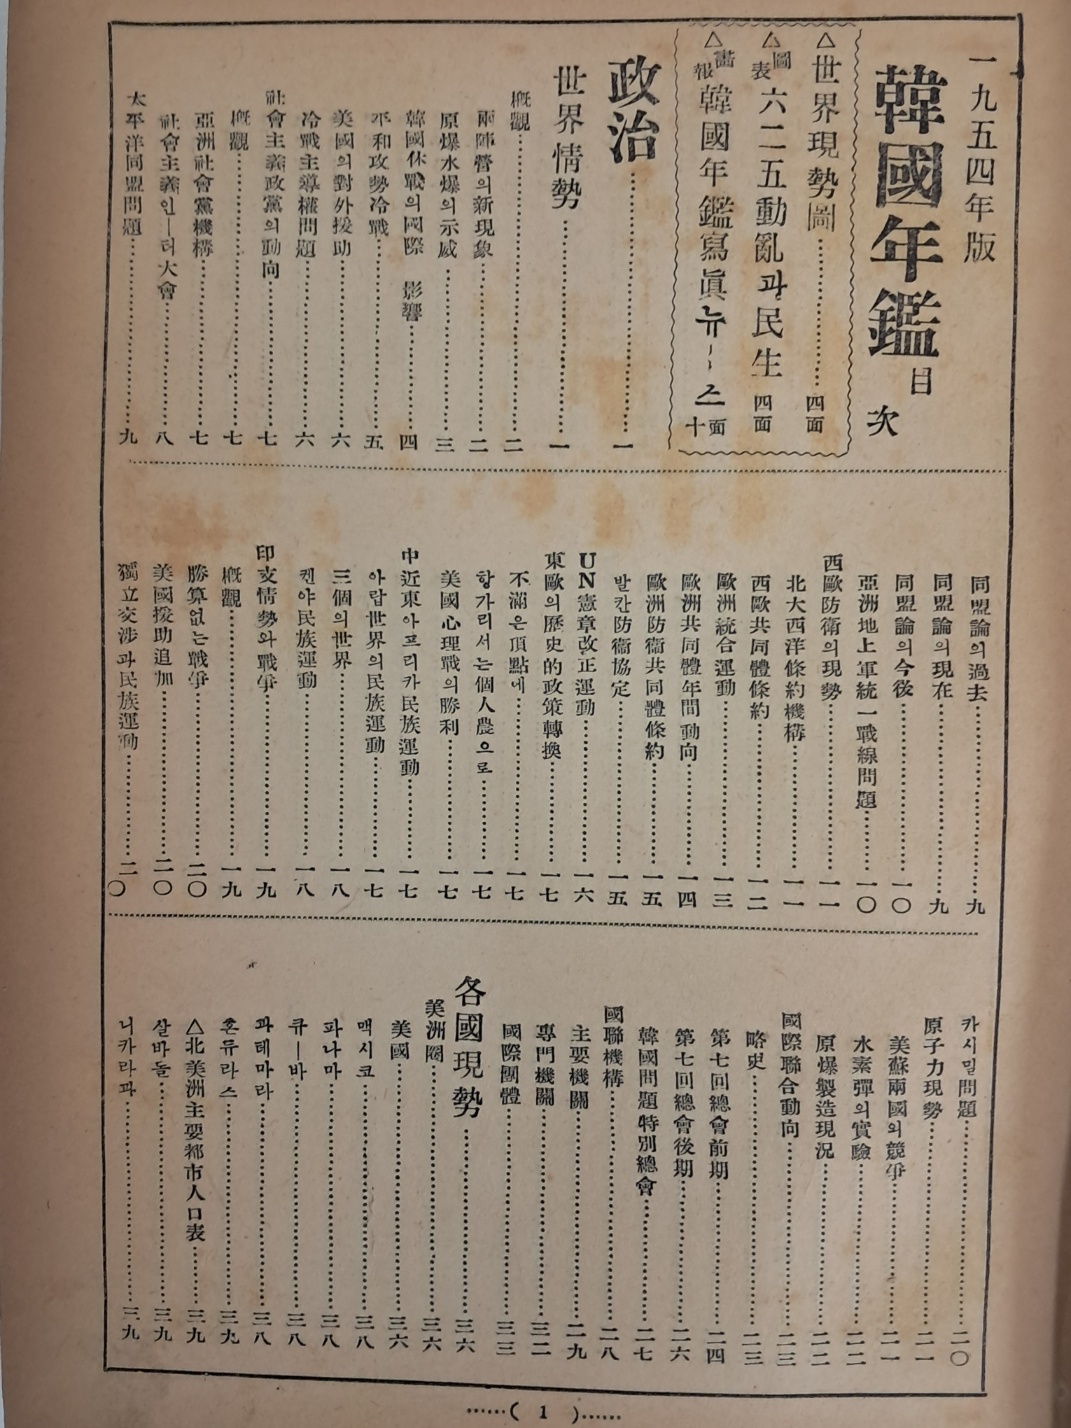 一九五四年版
韓國年鑑 目次
△世界現勢圖……四面
△圖表 六二五動亂과民生 四面
△畫報 韓國年鑑寫眞뉴—스 十面
政治……一
世界情勢……一
槪觀……二
兩陣營의新現象……二
原爆水爆의示威……三
韓國休戰의國際 影響……四
平和攻勢冷戰……五
美國의對外援助……六
冷戰主導權問題……六
社會主義政黨의動向……七
槪觀……七
亞洲社會黨機構……七
社會主義인—터大會……八
太平洋同盟問題……九
同盟論의過去……九
同盟論의現在……九
同盟論의今後……一〇
亞洲地上軍統一戰線問題……一〇
西歐防衛의現勢……一一
北大西洋條約機構……一一
西歐共同體條約……一二
歐洲統合運動……一三
歐洲共同體年間動向……一四
歐洲防衞共同體條約……一五
발칸防衞協定……一五
UN憲章改正運動……一六
東歐의歷史的政策轉換……一七
不滿은頂點에……一七
항가리서는個人農으로……一七
美國心理戰의勝利……一七
中近東아프리카民族運動……一七
아랍世界의民族運動……一七
三個의世界……一八
켄야民族運動……一八
印支情勢와戰爭……一九
槪觀……一九
勝算없는戰爭……二〇
美國援助追加……二〇
獨立交涉과民族運動……二〇
카시밀問題……二〇
原子力現勢……二一
美蘇兩國의競爭……二一
水素彈의實驗……二二
原爆製造現況……二二
國際聯合動向……二三
略史……二三
第七回總會前期……二四
第七回總會後期……二六
韓國問題特別總會……二七
國聯機構……二八
主要機關……二九
專門機關……三二
國際團體……三三
各國現勢……三六
美洲圈……三六
美國……三六
맥시코……三八
파나마……三八
큐—바……三八
과테마라……三八
혼듀라스……三九
△北美洲主要都市人口表……三九
살바돌……三九
니카라과……三九
……( 1 )……